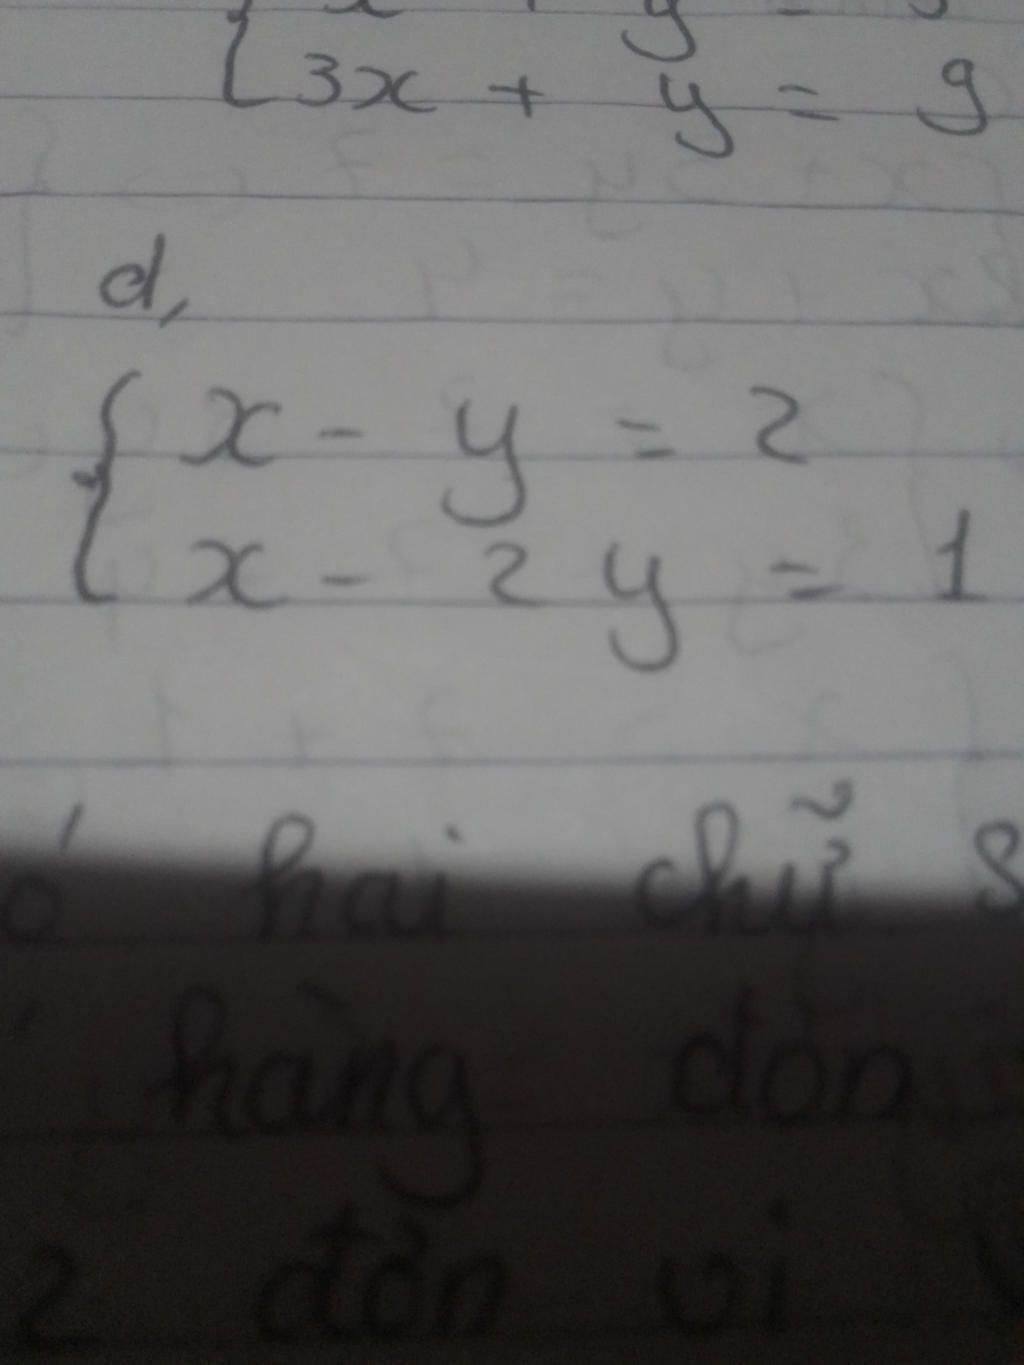 3x + y = 9
d,
x - y = 2
x - 2y = 1
hai chữ
hàng đơn
2 đơn vị